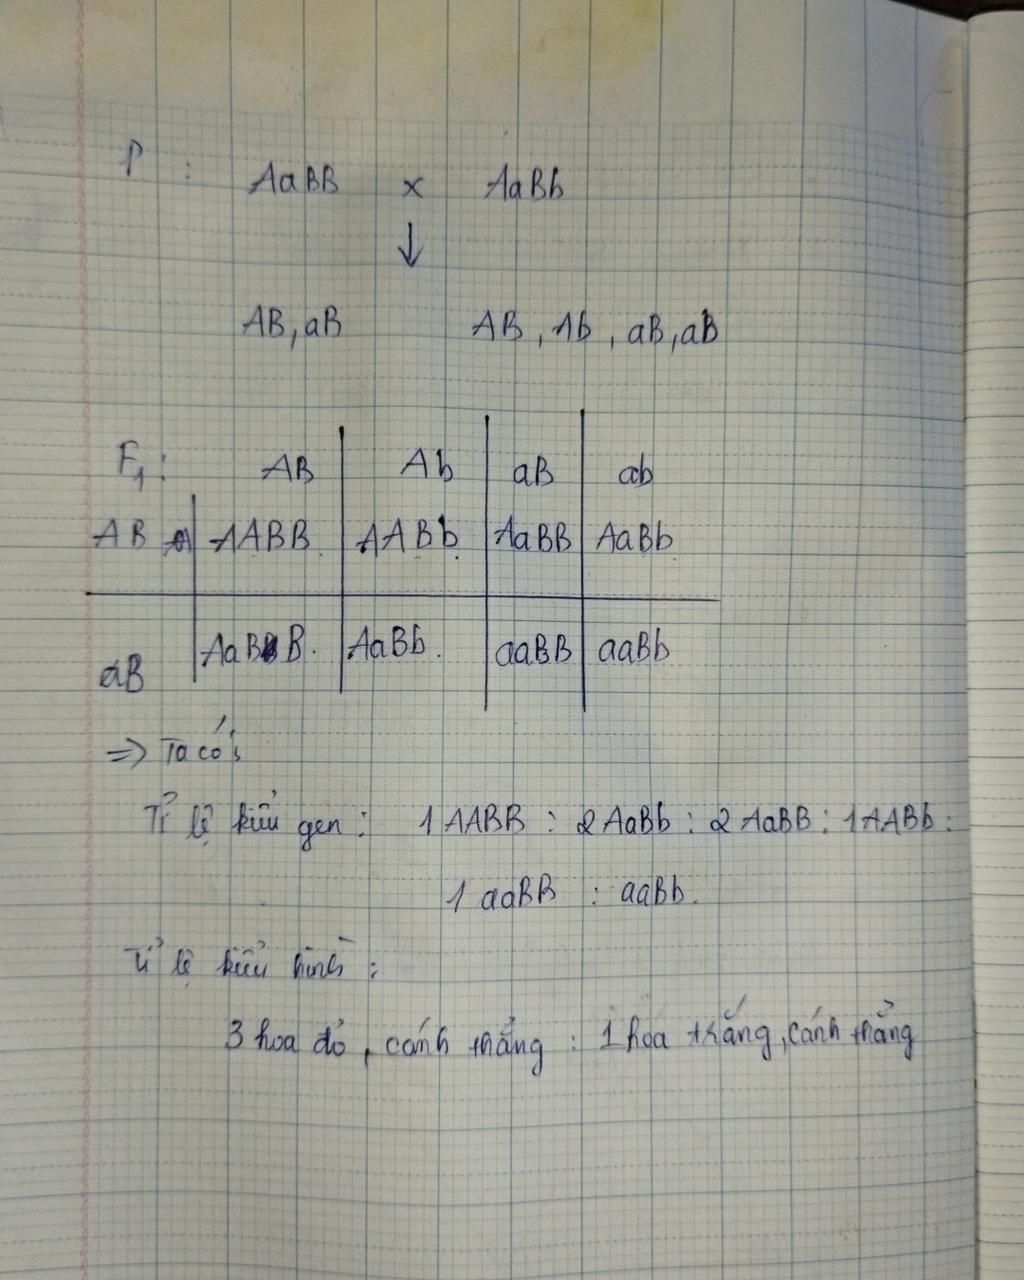 P : AaBB x AaBb
↓
AB, aB AB, Ab, aB, aB
F1: AB Ab aB ab
AB AABB AABb AaBB AaBb
aB AaBB AaBb aaBB aaBb
=> Ta có:
Tỉ lệ kiểu gen: 1 AABB : 2 AaBb : 2 AaBB : 1 AABb :
1 aaBB : aaBb.
Tỉ lệ kiểu hình:
3 hoa đỏ, cánh thẳng : 1 hoa trắng, cánh thẳng